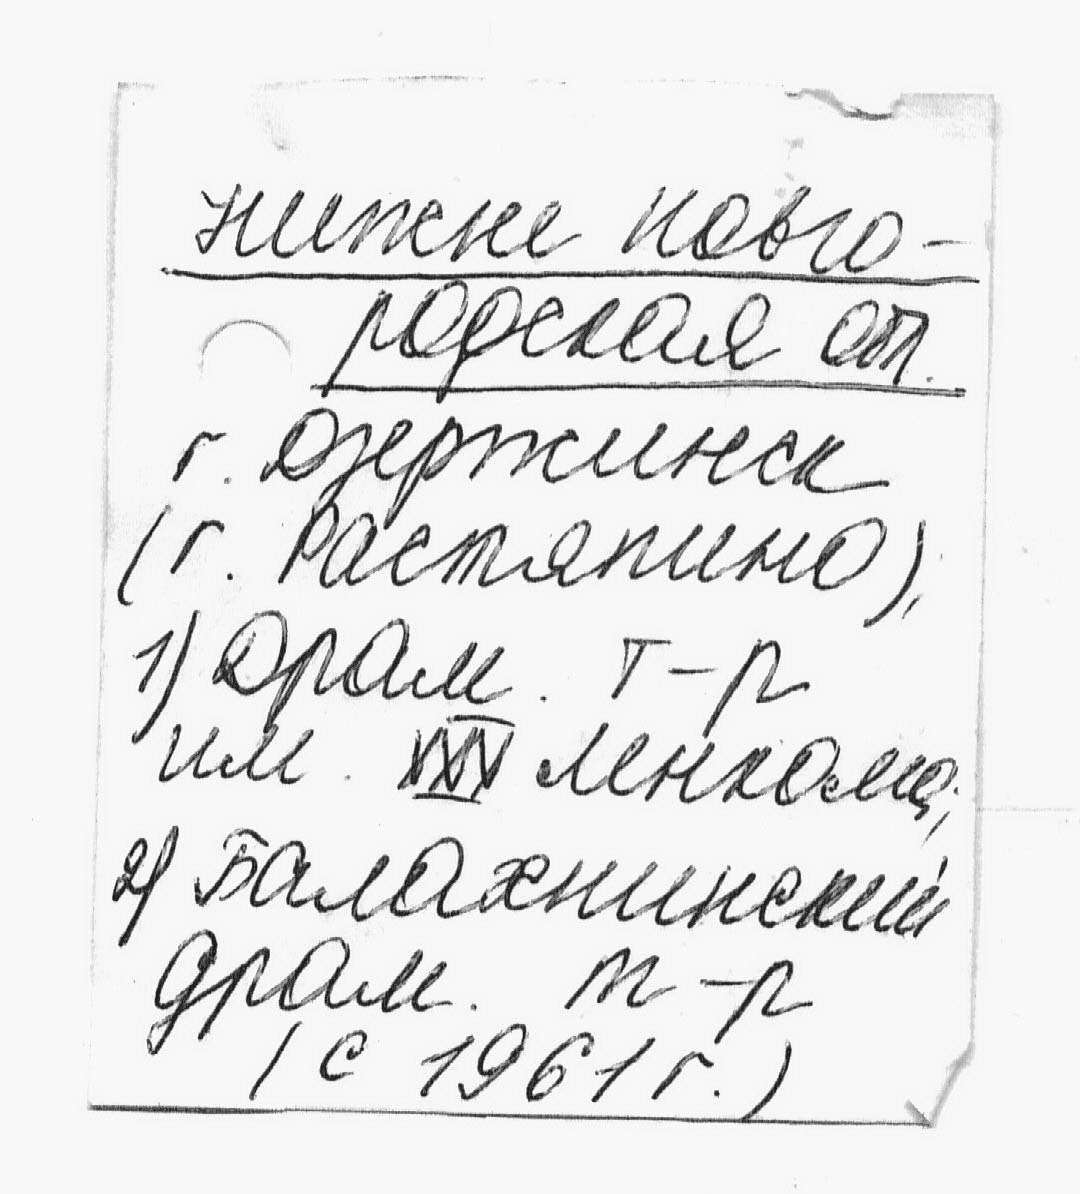 Нижне Новго-
родская отп.
г. Дзержинск
(г. Растяпино),
1) Драм. т-р
им. XXV Ленкома;
2) Балахнинский
драм. т-р
(с 1961 г.)